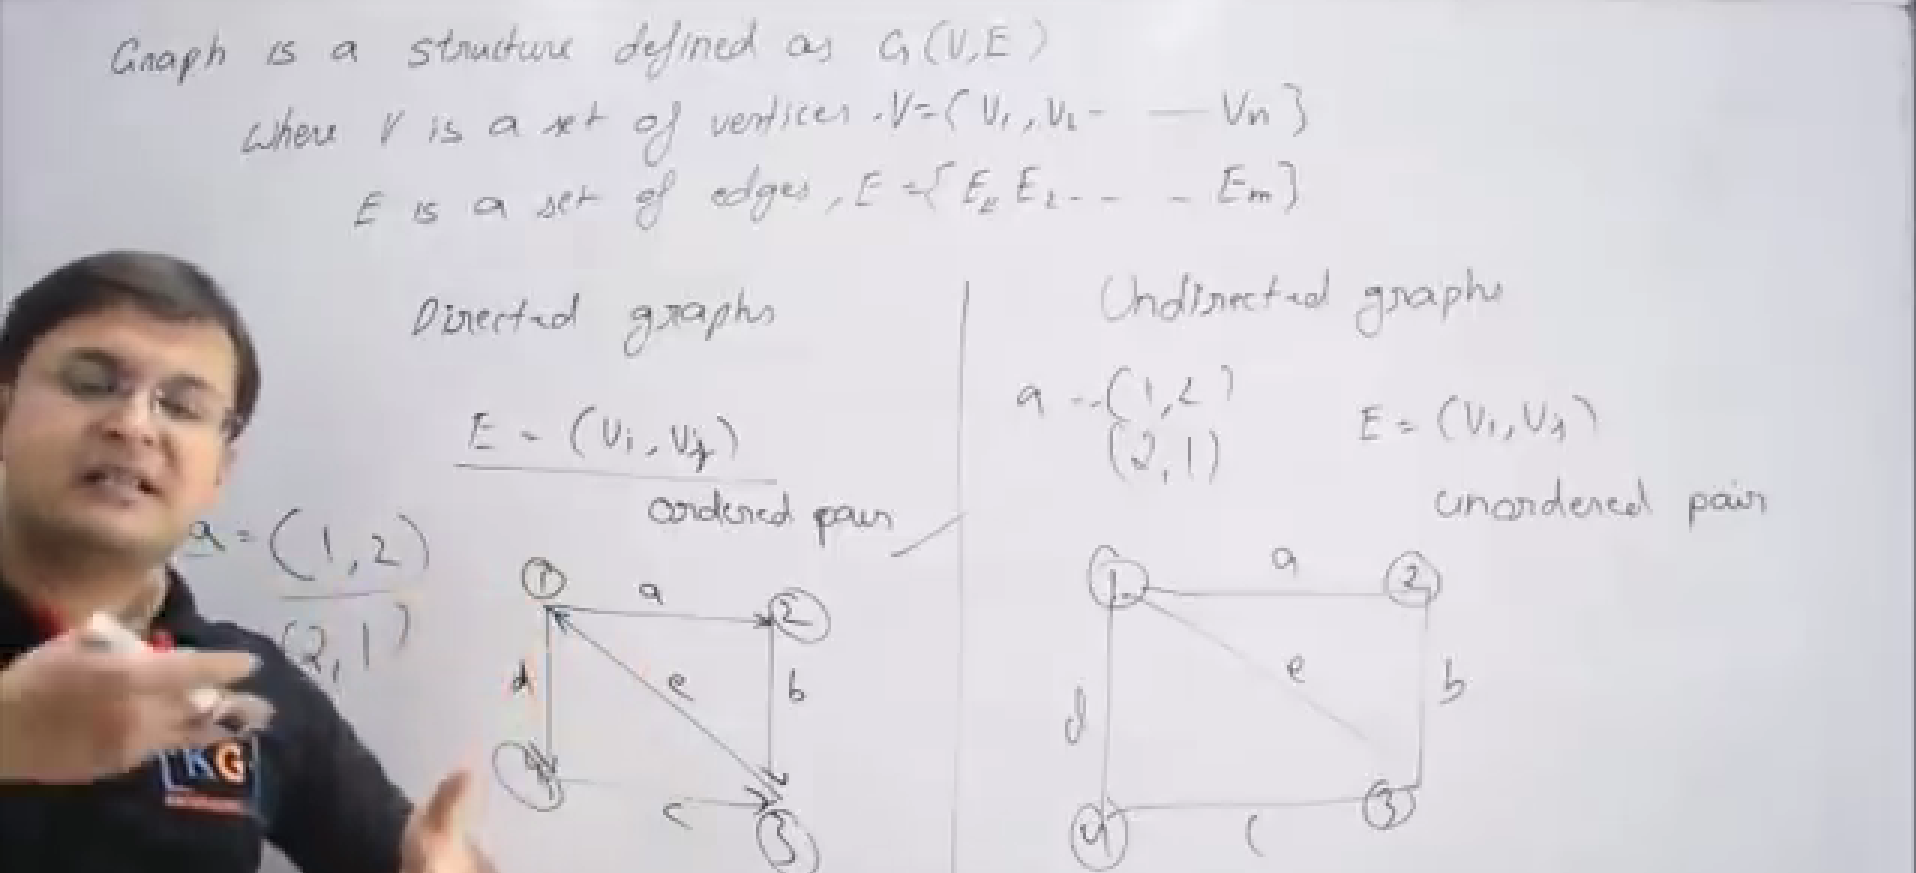 Graph is a structure defined as G(V,E)
Where V is a set of vertices. V={V1,V2- - Vn}
E is a set of edges, E={E1,E2-- - Em}
Directed graphs
E - (Vi,Vj)
ordered pair
a = (1,2)
(2,1)
1
a
2
d
e
b
4
c
3
Undirected graphs
a -- (1,2)
(2,1)
E = (Vi,Vj)
unordered pair
1
a
2
d
e
b
4
c
3
KG